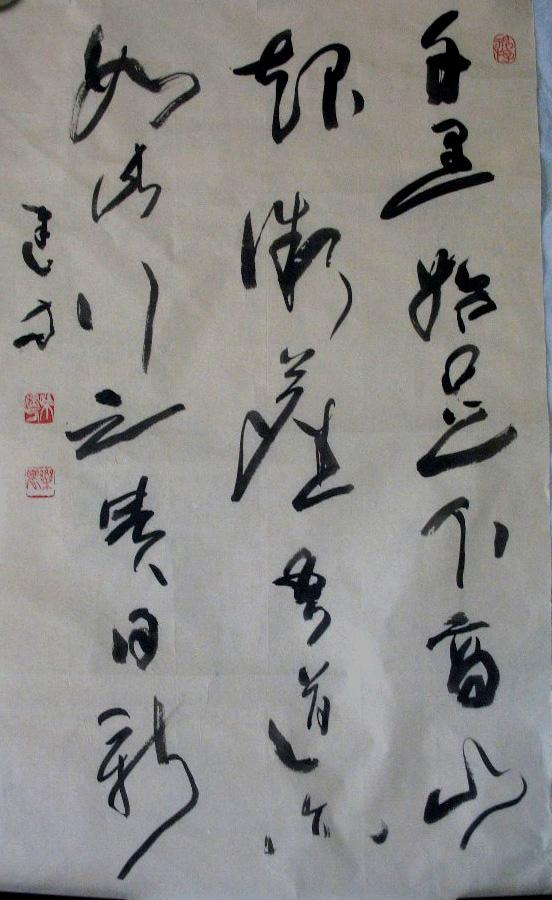 千里始足下高山
起微塵吾道亦
如此行之貴日新